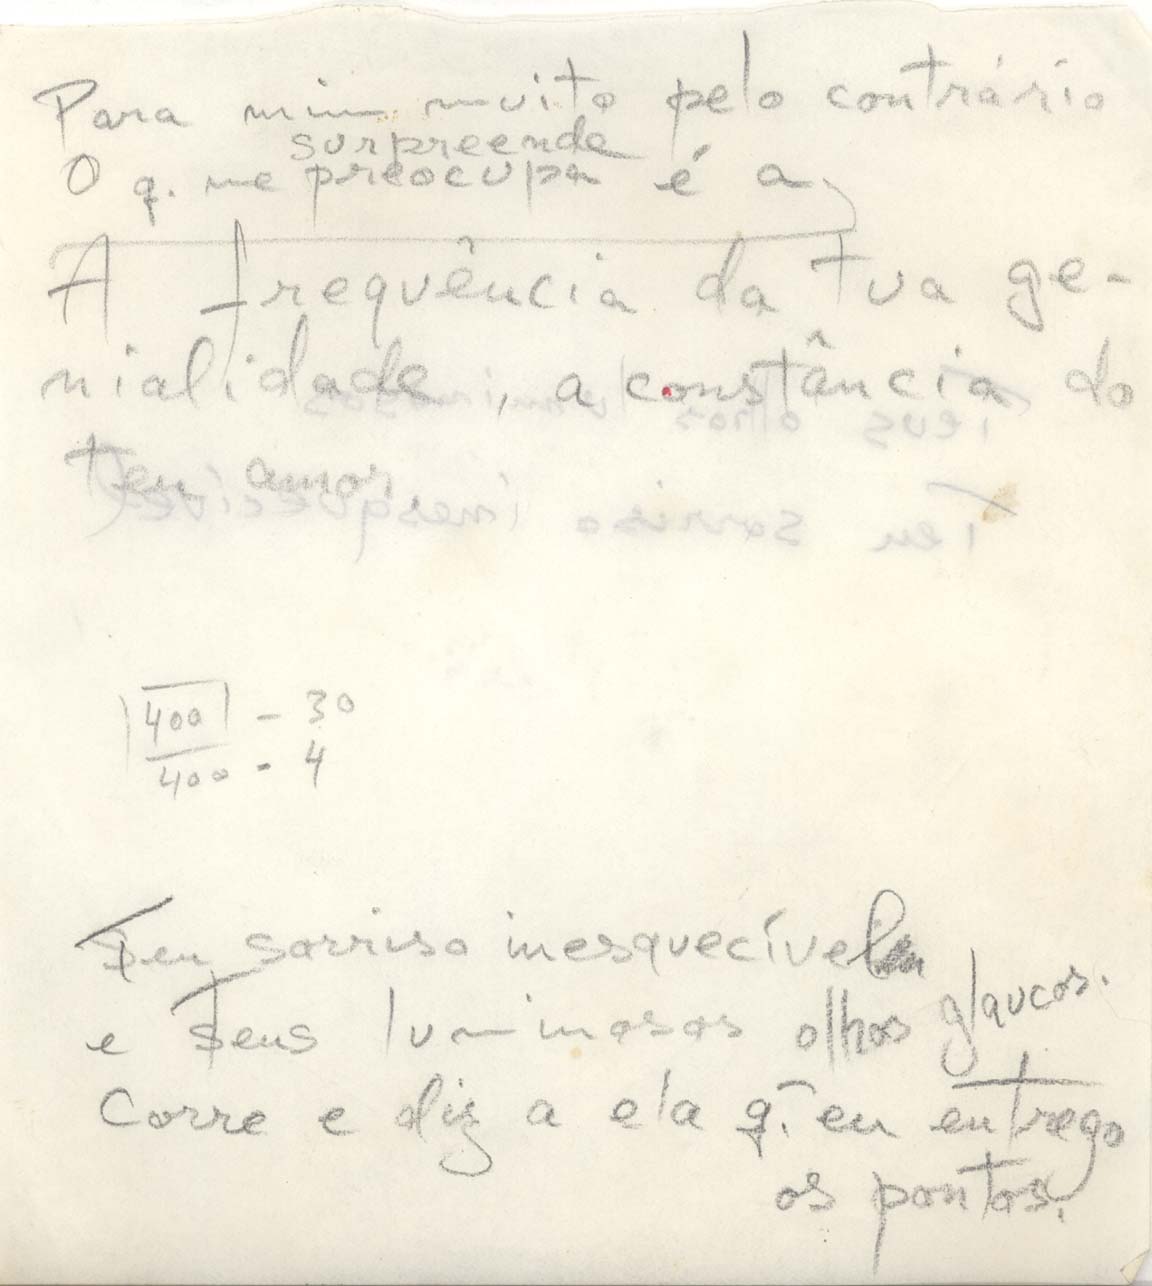 Para mim muito pelo contrário
surpreende
O q. me preocupa é a
A frequência da tua ge-
nialidade, a constância do
teu amor
400 - 30
400 - 4
Teu sorriso inesquecível
e Teus luminosos olhos glaucos.
Corre e diz a ela q. eu entrego
os pontos.